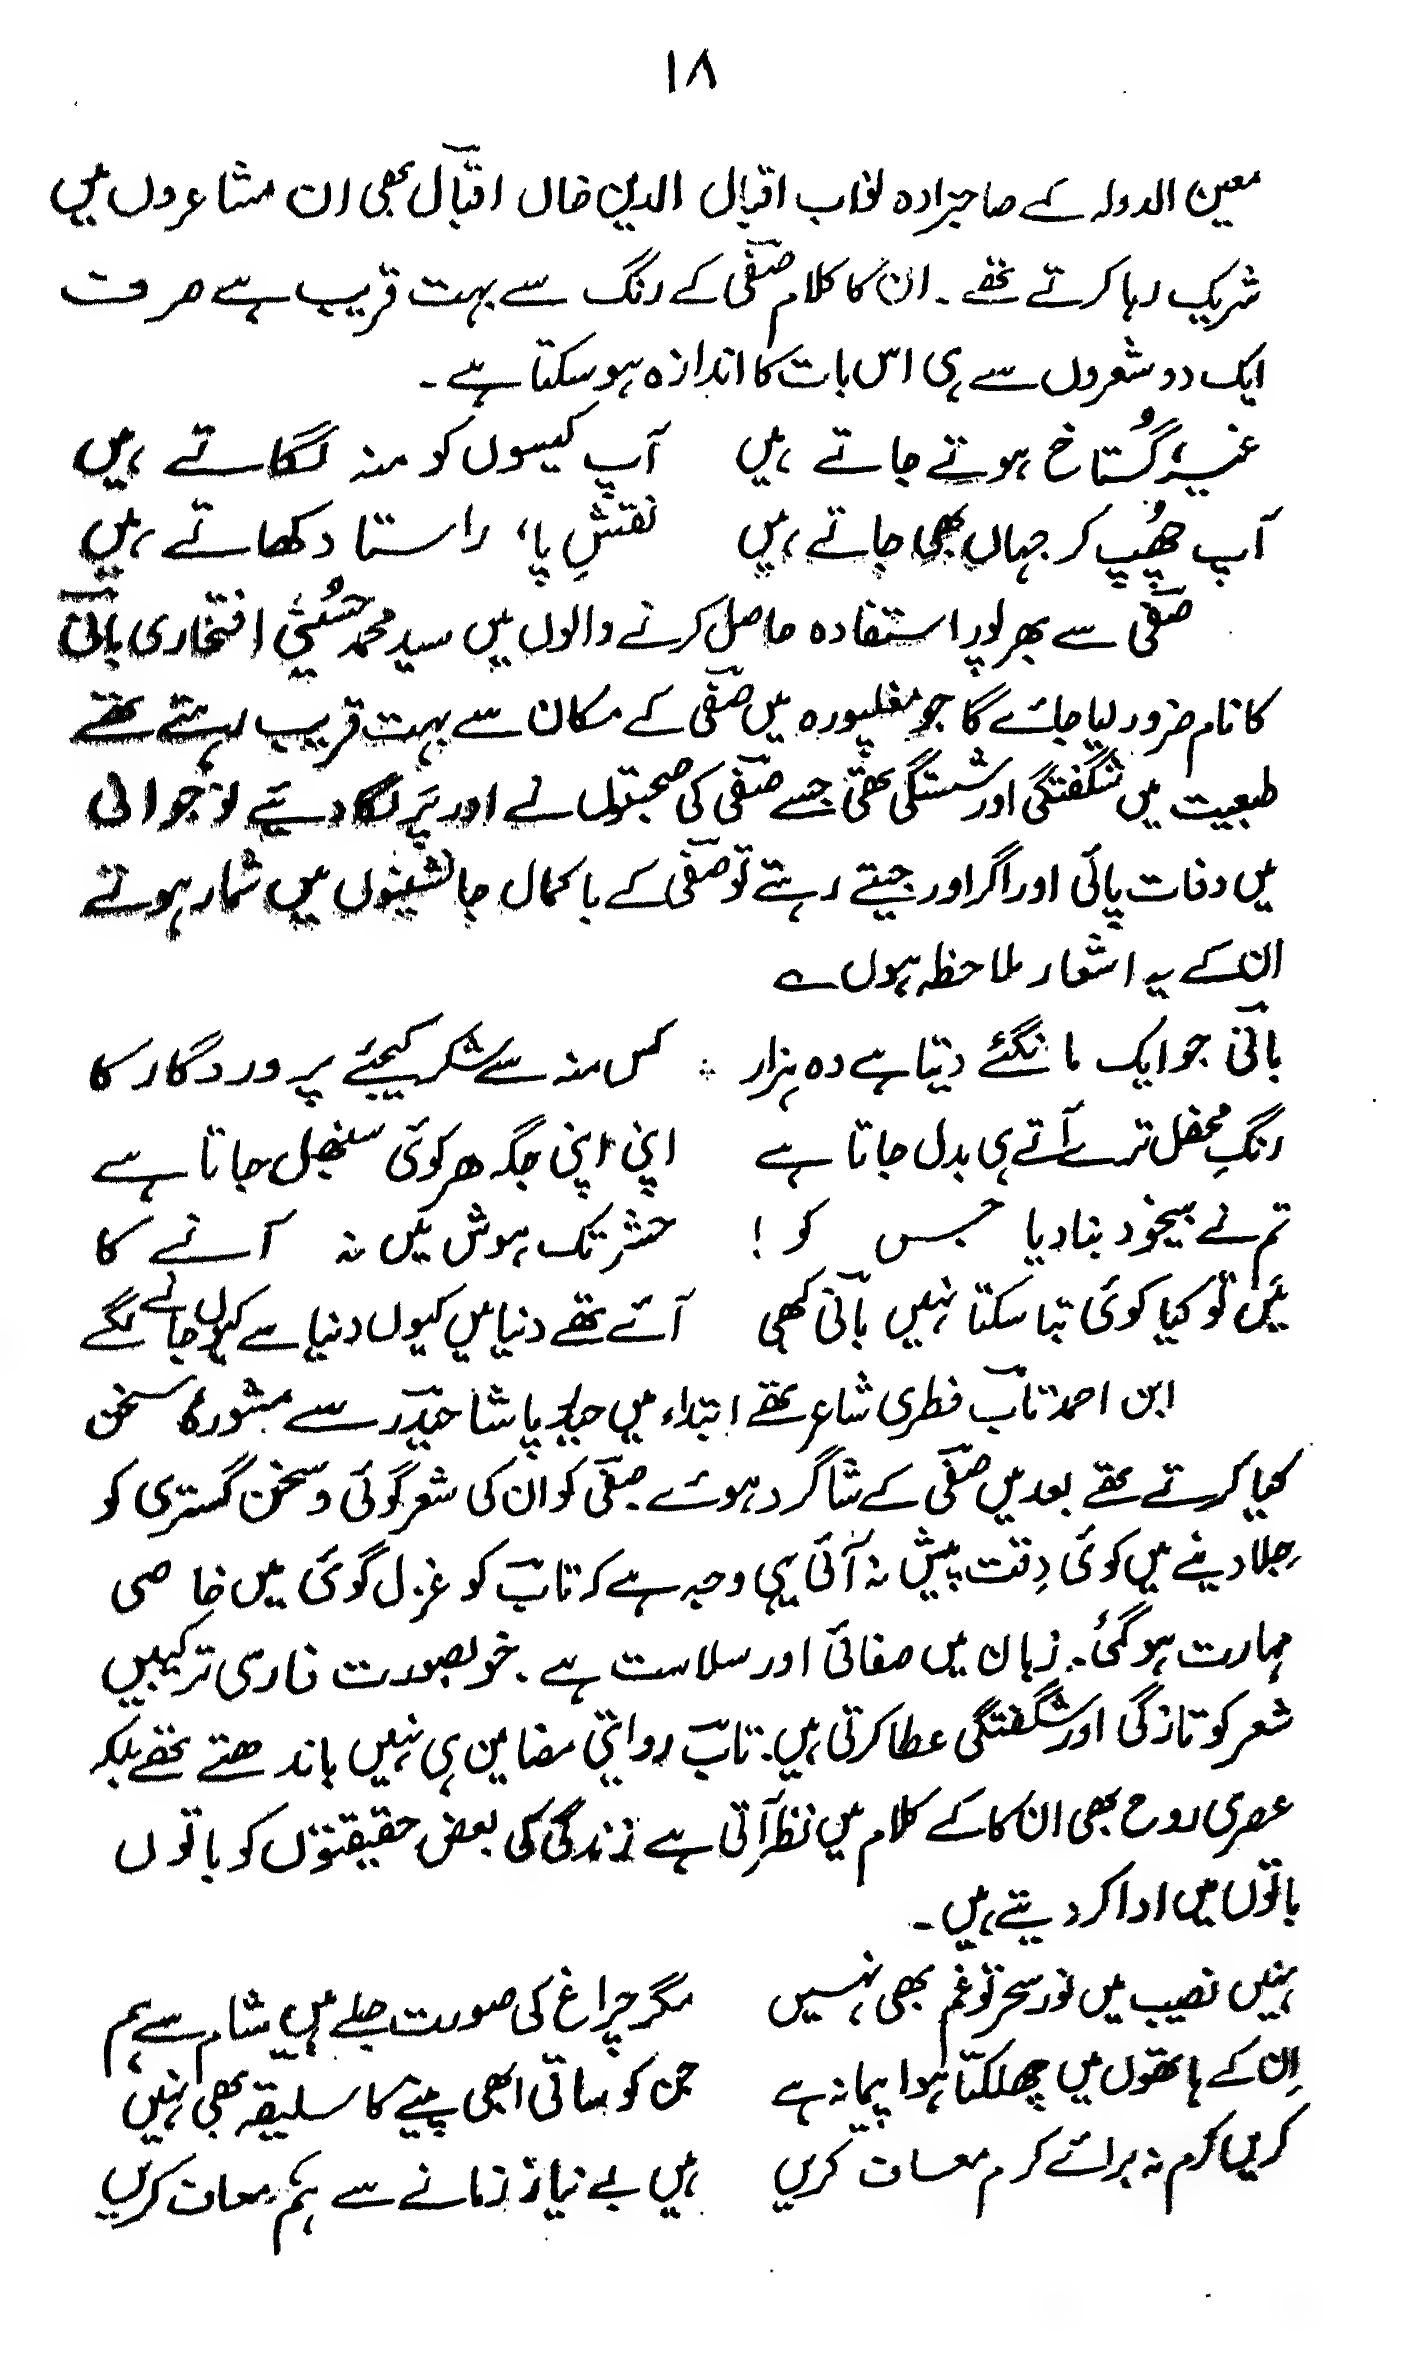 ۱۸
معین الدولہ کے صاحبزادہ نواب اقبال الدین خاں اقبالؔ بھی ان مشاعروں میں
شریک رہا کرتے تھے ۔ ان کا کلام صفیؔ کے رنگ سے بہت قریب ہے صرف
ایک دو شعروں سے ہی اس بات کا اندازہ ہو سکتا ہے ۔
غیر گُستاخ ہوتے جاتے ہیں آپ کیسوں کو منہ لگاتے ہیں
آپ چھُپ کر جہاں بھی جاتے ہیں نقشِ پا، راستا دکھاتے ہیں
صفیؔ سے بھرپور استفادہ حاصل کرنے والوں میں سید محمد حُسینی افتخاری باقیؔ
کا نام ضرور لیا جائے گا جو مغلپورہ میں صفیؔ کے مکان سے بہت قریب رہتے تھے
طبعیت میں شگفتگی اور شستگی تھی جسے صفیؔ کی صحبتوں نے اور پَر لگا دیئے نوجوانی
میں وفات پائی اور اگر اور جیتے رہتے تو صفیؔ کے باکمال جانشینوں میں شمار ہوتے
ان کے یہ اشعار ملاحظہ ہوں ؎
باقیؔ جو ایک مانگئے دیتا ہے وہ ہزار ؞ کس منہ سے شکر کیجئے پروردگار کا
رنگِ محفل ترے آتے ہی بدل جاتا ہے اپنی اپنی جگہ ھر کوئی سنبھل جاتا ہے
تم نے بیخود بنا دیا جس کو ! حشر تک ہوش میں نہ آنے کا
میں تو کیا کوئی بتا سکتا نہیں باقیؔ کبھی آئے تھے دنیا میں کیوں دنیا سے کیوں جانے لگے
ابن احمد تابؔ فطری شاعر تھے ابتداء میں حیدر پاشا حیدرؔ سے مشورۂ سخن
کیا کرتے تھے بعد میں صفیؔ کے شاگرد ہوئے صفیؔ کو ان کی شعر گوئی و سخن گستری کو
جِلا دینے میں کوئی دِقت پیش نہ آئی یہی وجہ ہے کہ تابؔ کو غزل گوئی میں خاصی
مہارت ہو گئی۔ زبان میں صفائی اور سلاست ہے ۔ خوبصورت فارسی ترکیبیں
شعر کو تازگی اور شگفتگی عطا کرتی ہیں۔ تابؔ روایتی مضامین ہی نہیں باندھتے تھے بلکہ
عصری روح بھی ان کا کے کلام میں نظر آتی ہے زندگی کی بعض حقیقتوں کو باتوں
باتوں میں ادا کر دیتے ہیں ۔
نہیں نصیب میں نور سحر تو غم بھی نہیں مگر چراغ کی صورت جلے ہیں شام سے ہم
اِن کے ہاتھوں میں چھلکتا ہوا پیمانہ ہے جن کو ساقی ابھی پینے کا سلیقہ بھی نہیں
کریں کرم نہ برائے کرم معاف کریں ہیں بے نیاز زمانے سے ہم معاف کریں